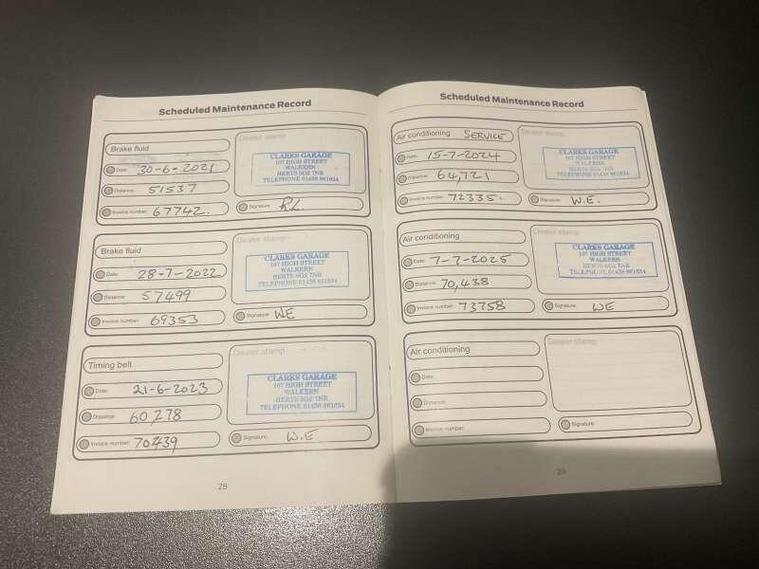 Scheduled Maintenance Record
Brake fluid
Date: 30-6-2021
Distance: 51537
Invoice number: 67742
Dealer stamp
CLARKS GARAGE
107 HIGH STREET
WALKERN
HERTS SG2 7NR
TELEPHONE 01438 861634
Signature RL
Brake fluid
Date: 28-7-2022
Distance: 57499
Invoice number: 69353
Dealer stamp
CLARKS GARAGE
107 HIGH STREET
WALKERN
HERTS SG2 7NR
TELEPHONE 01438 861634
Signature WE
Timing belt
Date: 21-6-2023
Distance: 60,278
Invoice number: 70739
Dealer stamp
CLARKS GARAGE
107 HIGH STREET
WALKERN
HERTS SG2 7NR
TELEPHONE 01438 861634
Signature: W.E
28
Scheduled Maintenance Record
Air conditioning SERVICE
Date: 15-7-2024
Distance: 64,721
Invoice number: 72335.
Dealer stamp
CLARKS GARAGE
107 HIGH STREET
WALKERN
HERTS SG2 7NR
TELEPHONE 01438 861634
Signature: W.E.
Air conditioning
Date: 7-7-2025
Distance: 70,438
Invoice number: 73758
Dealer stamp
CLARKS GARAGE
107 HIGH STREET
WALKERN
HERTS SG2 7NR
TELEPHONE 01438 861634
Signature: WE
Air conditioning
Date:
Distance:
Invoice number:
Dealer stamp
Signature:
29